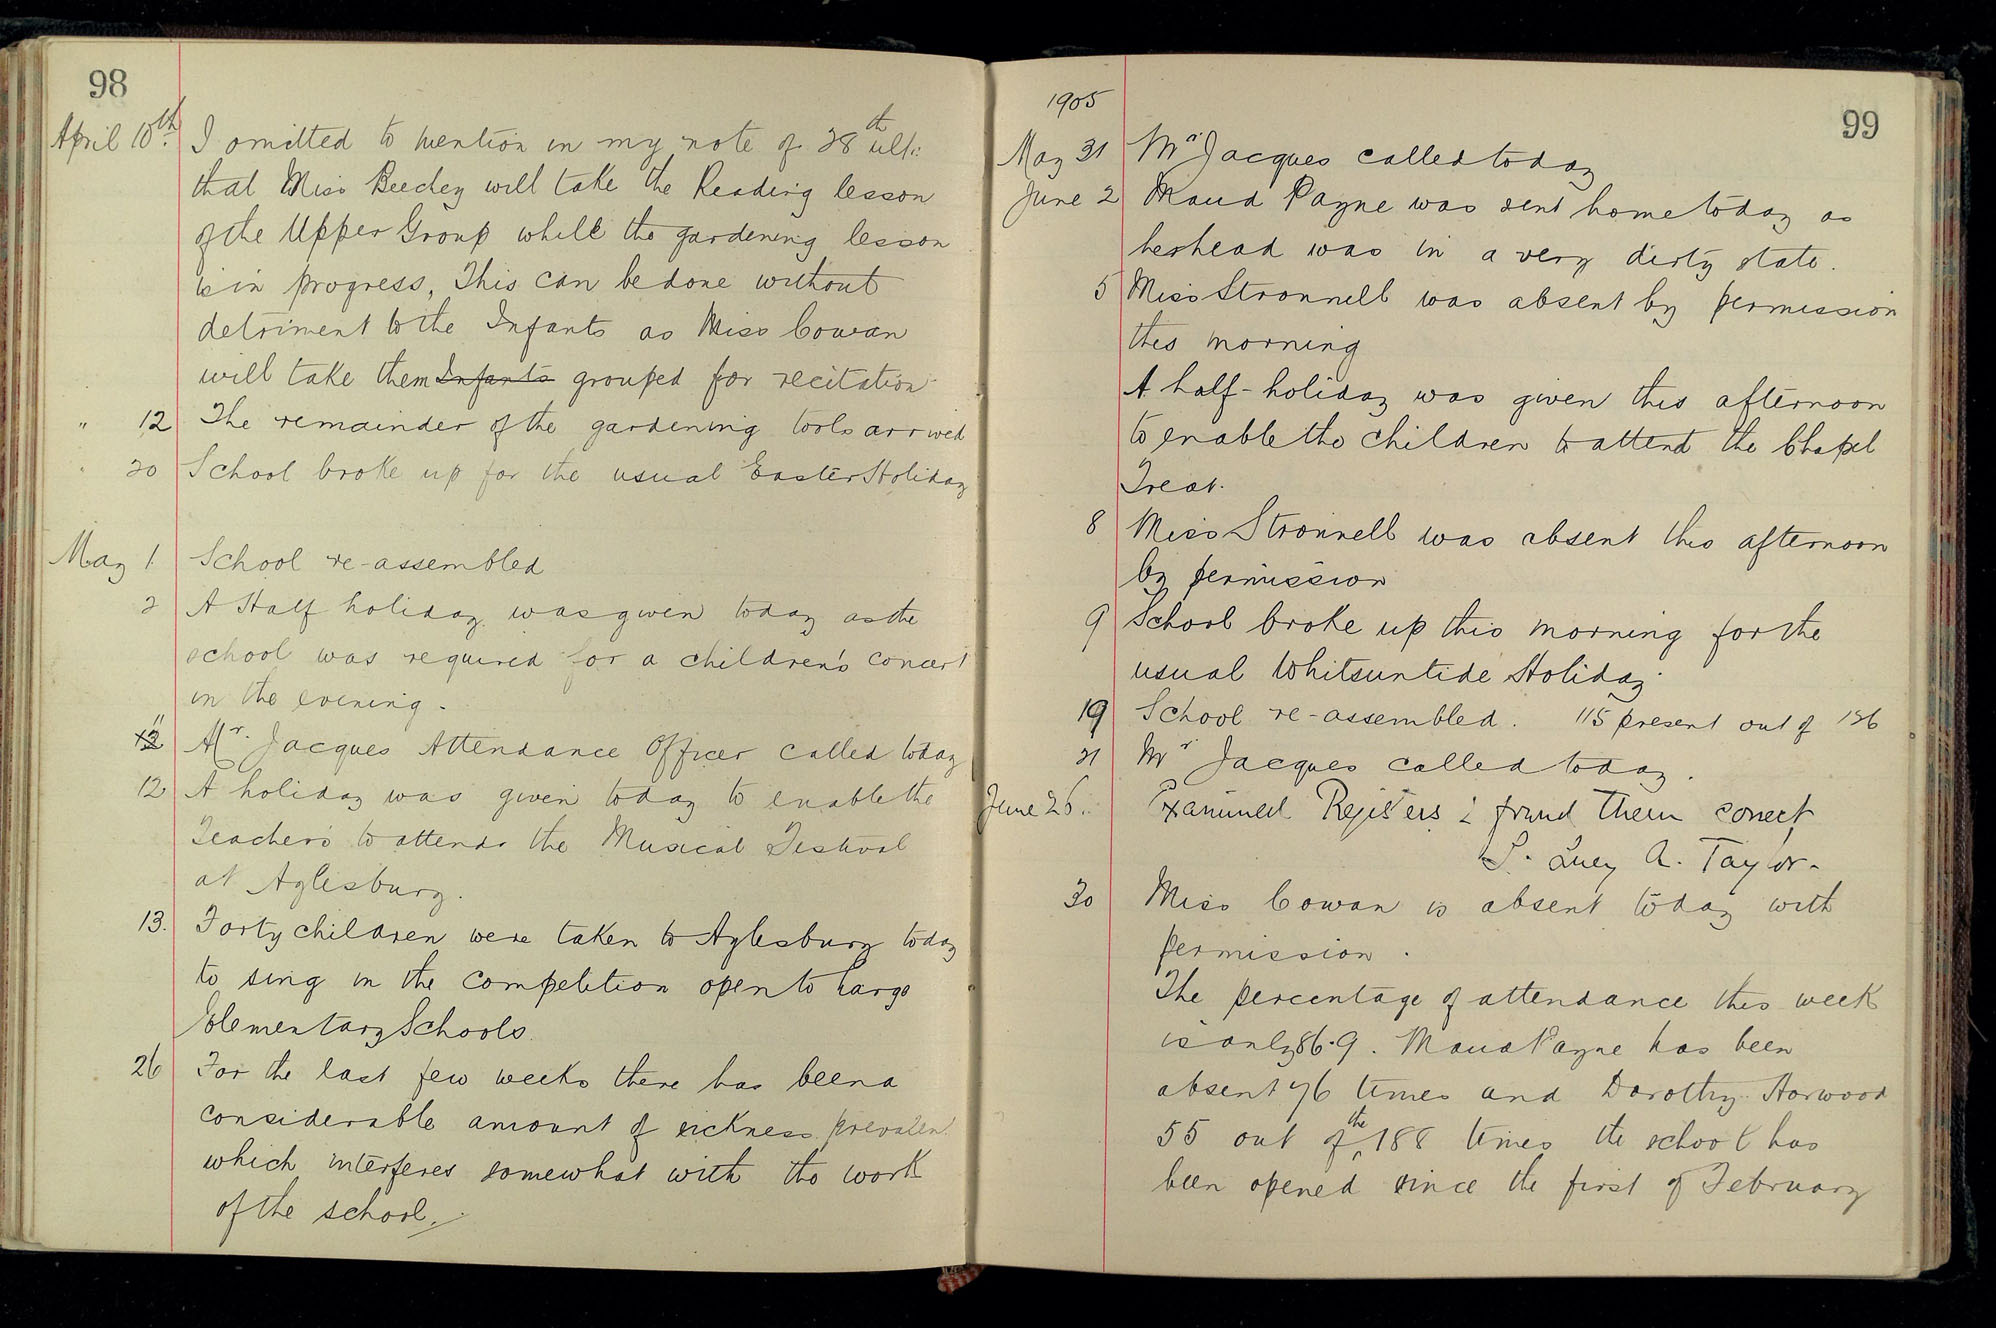 98
April 10th. I omitted to mention in my note of 28th ult:
that Miss Beechey will take the Reading lesson
of the Upper Group while the gardening lesson
is in progress, This can be done without
detriment to the Infants as Miss Cowan
will take them Infants grouped for recitation
" 12 The remainder of the gardening tools arrived
" 20 School broke up for the usual Easter Holiday
May 1 School re-assembled
2 A Half holiday was given today as the
school was required for a children's concert
in the evening.
11 12 Mr. Jacques Attendance Officer called today
12 A holiday was given today to enable the
Teachers to attend the Musical Festival
at Aylesbury.
13. Forty children were taken to Aylesbury today
to sing in the competition open to Large
Elementary Schools.
26 For the last few weeks there has been a
considerable amount of sickness prevalent
which interferes somewhat with the work
of the school.
1905
99
May 31 Mr Jacques called today
June 2 Maud Payne was sent home today as
her head was in a very dirty state.
5 Miss Stronnell was absent by permission
this morning
A half-holiday was given this afternoon
to enable the children to attend the Chapel
Treat.
8 Miss Stronnell was absent this afternoon
by permission
9 School broke up this morning for the
usual Whitsuntide Holiday.
19 School re-assembled. 115 present out of 126
21 Mr Jacques called today.
June 26. Examined Registers & found them correct
Lucy A. Taylor.
30 Miss Cowan is absent today with
permission.
The percentage of attendance this week
is only 86.9. Maud Payne has been
absent 76 times and Dorothy Horwood
55 out of the 188 times the school has
been opened since the first of February